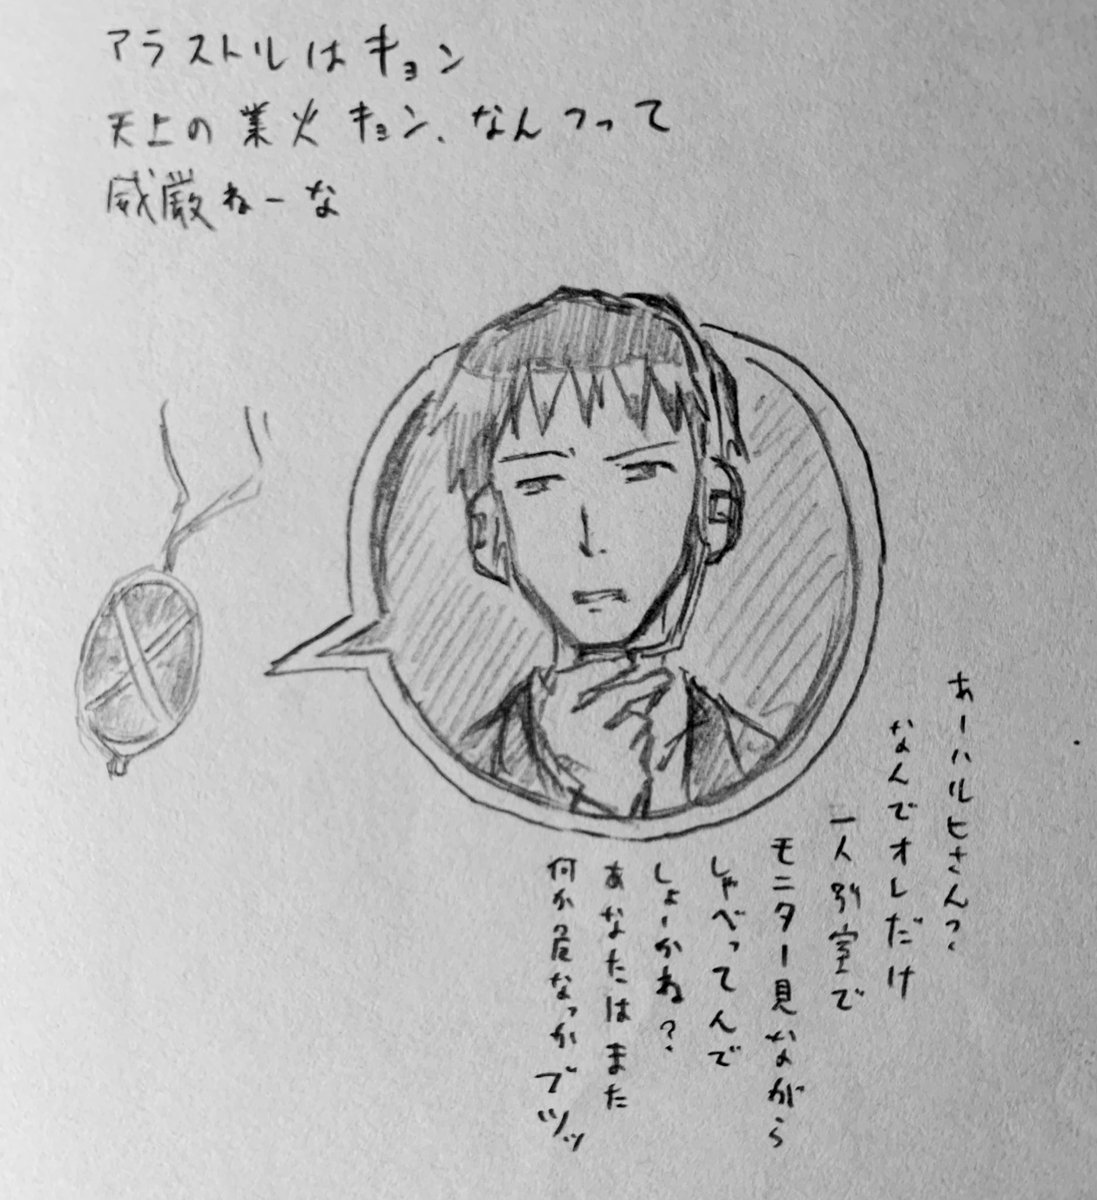 アラストルはキョン
天上の業火キョン、なんつって
威厳ねーな
あーハルヒさん?
なんでオレだけ
一人別室で
モニター見ながら
しゃべってんで
しょーかね?
あなたはまた
何か危なっかブツッ